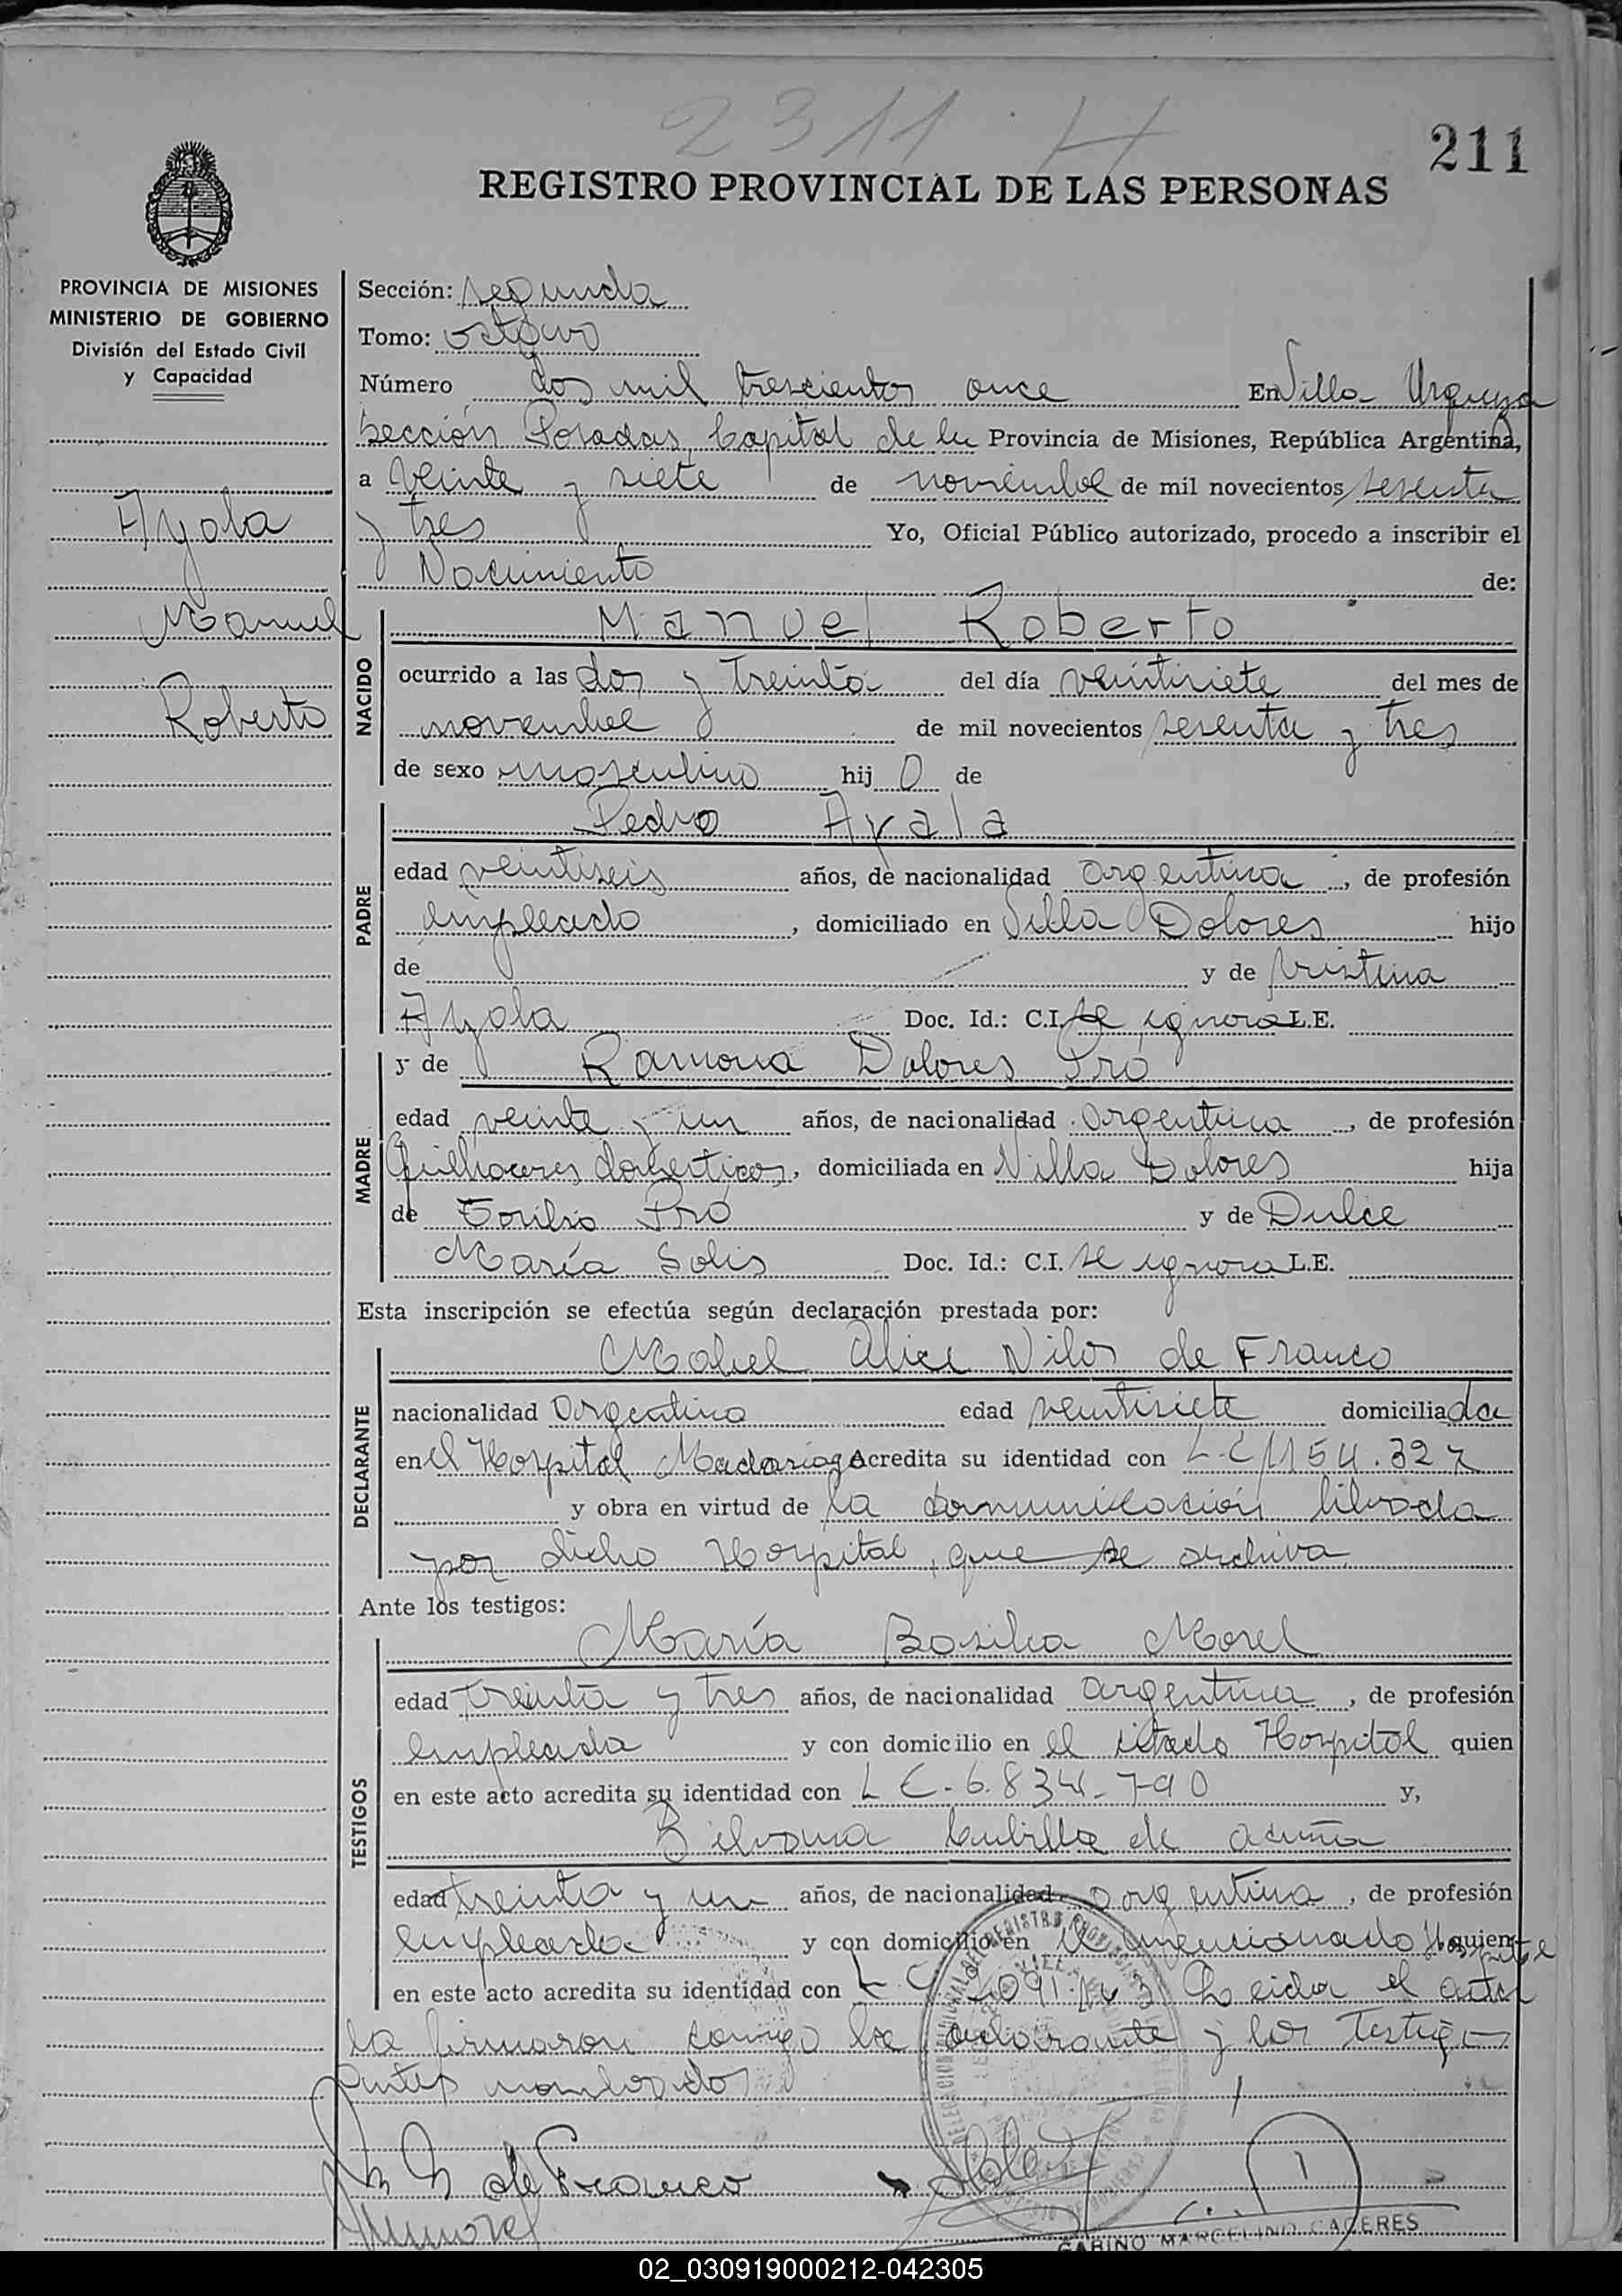 2311 H
211
REGISTRO PROVINCIAL DE LAS PERSONAS
PROVINCIA DE MISIONES
MINISTERIO DE GOBIERNO
División del Estado Civil
y Capacidad
Ayala
Manuel
Roberto
Sección: segunda
Tomo: octavo
Número dos mil trescientos once En Villa Urquiza
Sección Posadas, Capital de la Provincia de Misiones, República Argentina,
a veinte y siete de noviembre de mil novecientos sesenta
y tres Yo, Oficial Público autorizado, procedo a inscribir el
Nacimiento de:
NACIDO
Manuel Roberto
ocurrido a las dos y treinta del día veintisiete del mes de
noviembre de mil novecientos sesenta y tres
de sexo masculino hijo de
PADRE
Pedro Ayala
edad veintiseis años, de nacionalidad argentina, de profesión
empleado, domiciliado en Villa Dolores hijo
de y de Cristina
Ayala Doc. Id.: C.I. se ignora L.E.
MADRE
y de Ramona Dolores Pró
edad veinte y un años, de nacionalidad argentina, de profesión
Quehaceres domesticos, domiciliada en Villa Dolores hija
de Pró y de Dulce
María Solis Doc. Id.: C.I. se ignora L.E.
Esta inscripción se efectúa según declaración prestada por:
DECLARANTE
Mabel Alice de Franco
nacionalidad argentina edad veintisiete domiciliada
en el Hospital Madariaga Acredita su identidad con L-C 1154.327
y obra en virtud de la comunicación librada
por dicho Hospital, que se archiva
Ante los testigos:
TESTIGOS
María Basilia Morel
edad treinta y tres años, de nacionalidad argentina, de profesión
empleada y con domicilio en el citado Hospital quien
en este acto acredita su identidad con L C-6.834-790 y,
Silvana Cubilla de Acuña
edad treinta y un años, de nacionalidad argentina, de profesión
empleada y con domicilio en el mencionado Hospital quien
en este acto acredita su identidad con L C Leida el acta
la firmaron conmigo la declarante y los testigos
antes nombrados
de Franco
GABINO MARCELINO CACERES
02_030919000212-042305